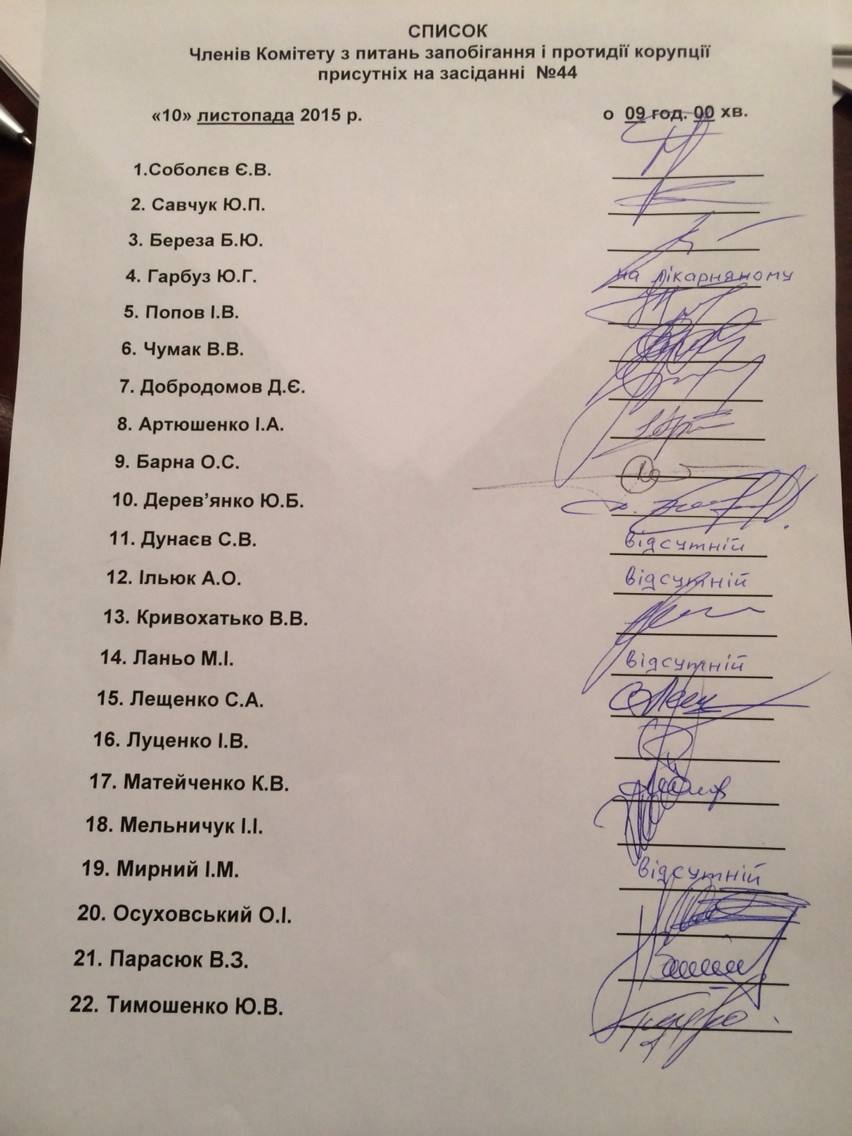 СПИСОК
Членів Комітету з питань запобігання і протидії корупції
присутніх на засіданні №44
«10» листопада 2015 р. о 09 год. 00 хв.
1.Соболєв Є.В.
2. Савчук Ю.П.
3. Береза Б.Ю.
4. Гарбуз Ю.Г. на лікарняному
5. Попов І.В.
6. Чумак В.В.
7. Добродомов Д.Є.
8. Артюшенко І.А.
9. Барна О.С.
10. Дерев’янко Ю.Б.
11. Дунаєв С.В. відсутній
12. Ільюк А.О. відсутній
13. Кривохатько В.В.
14. Ланьо М.І. відсутній
15. Лещенко С.А.
16. Луценко І.В.
17. Матейченко К.В.
18. Мельничук І.І.
19. Мирний І.М. відсутній
20. Осуховський О.І.
21. Парасюк В.З.
22. Тимошенко Ю.В.